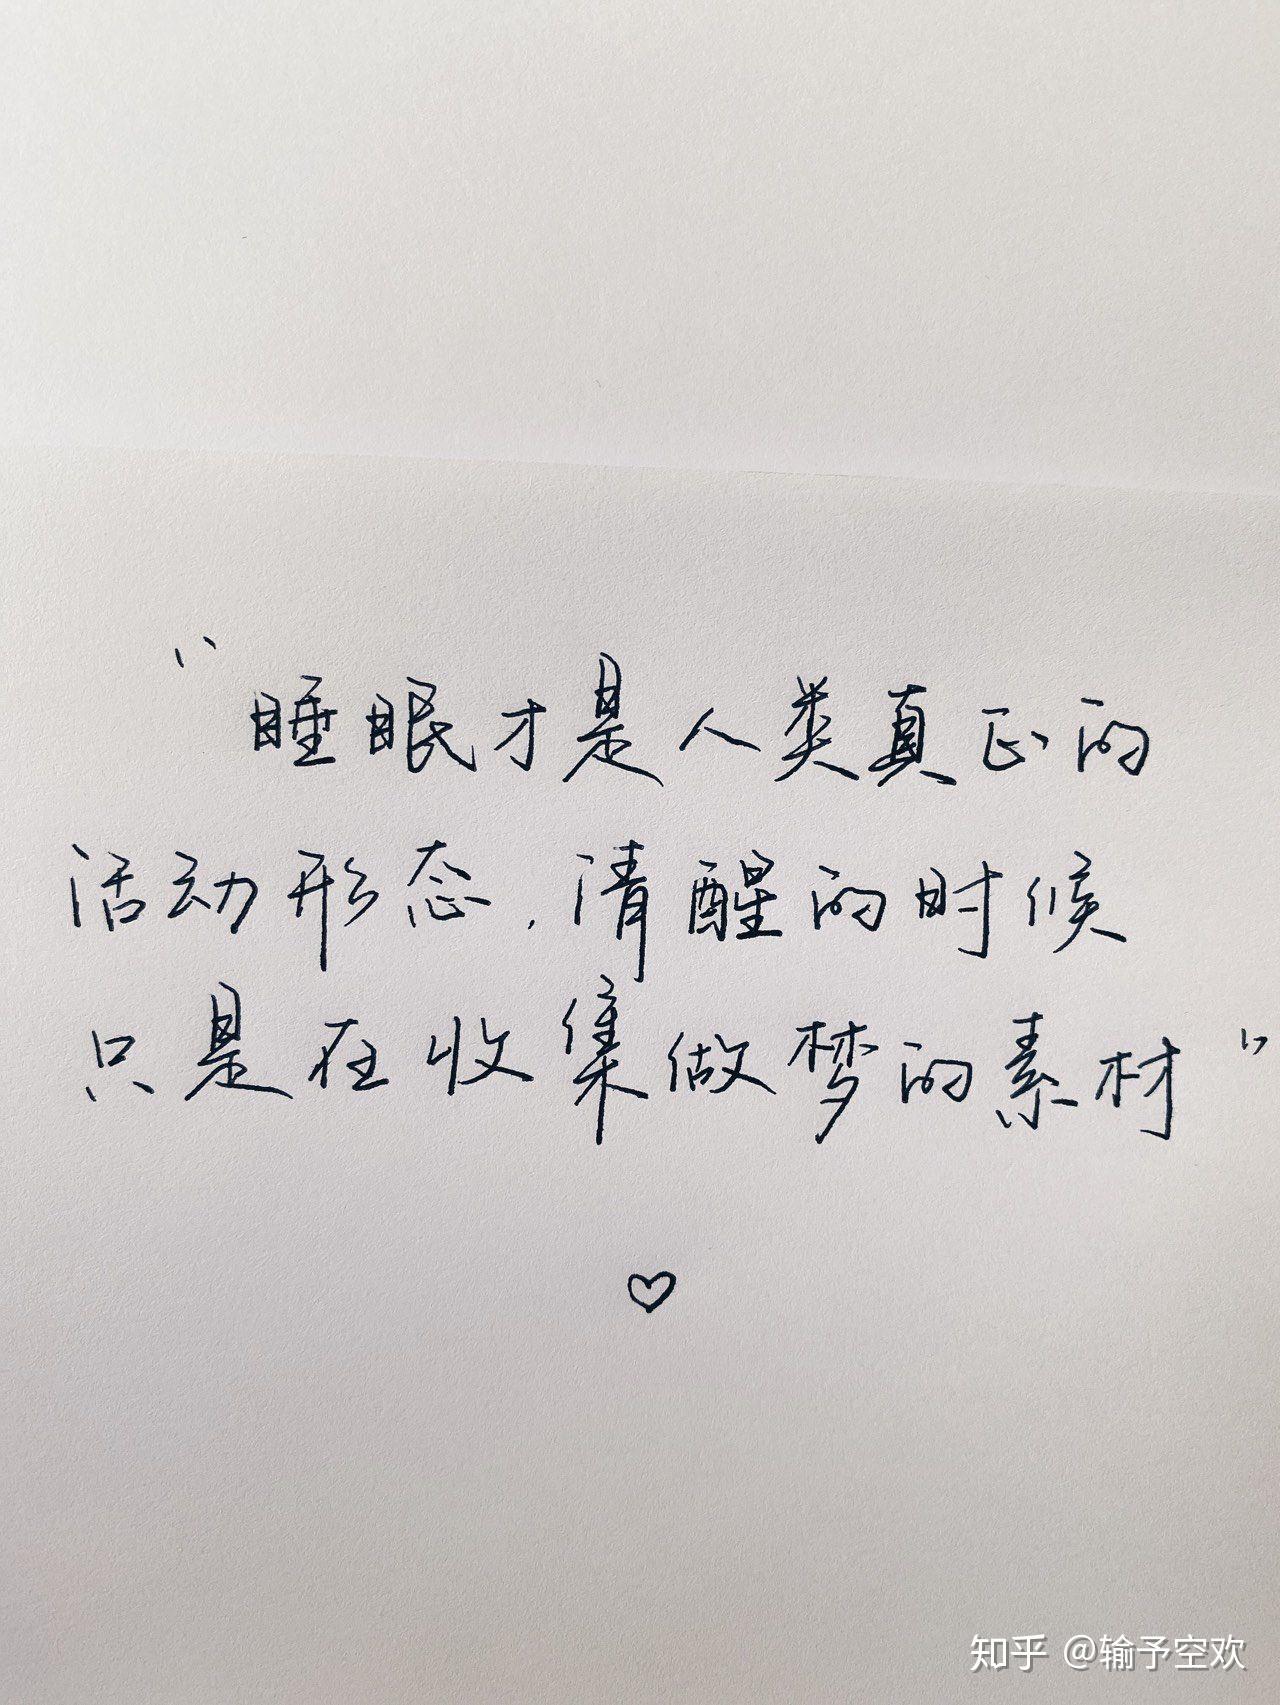 “睡眠才是人类真正的
活动形态，清醒的时候
只是在收集做梦的素材”
知乎 @输予空欢